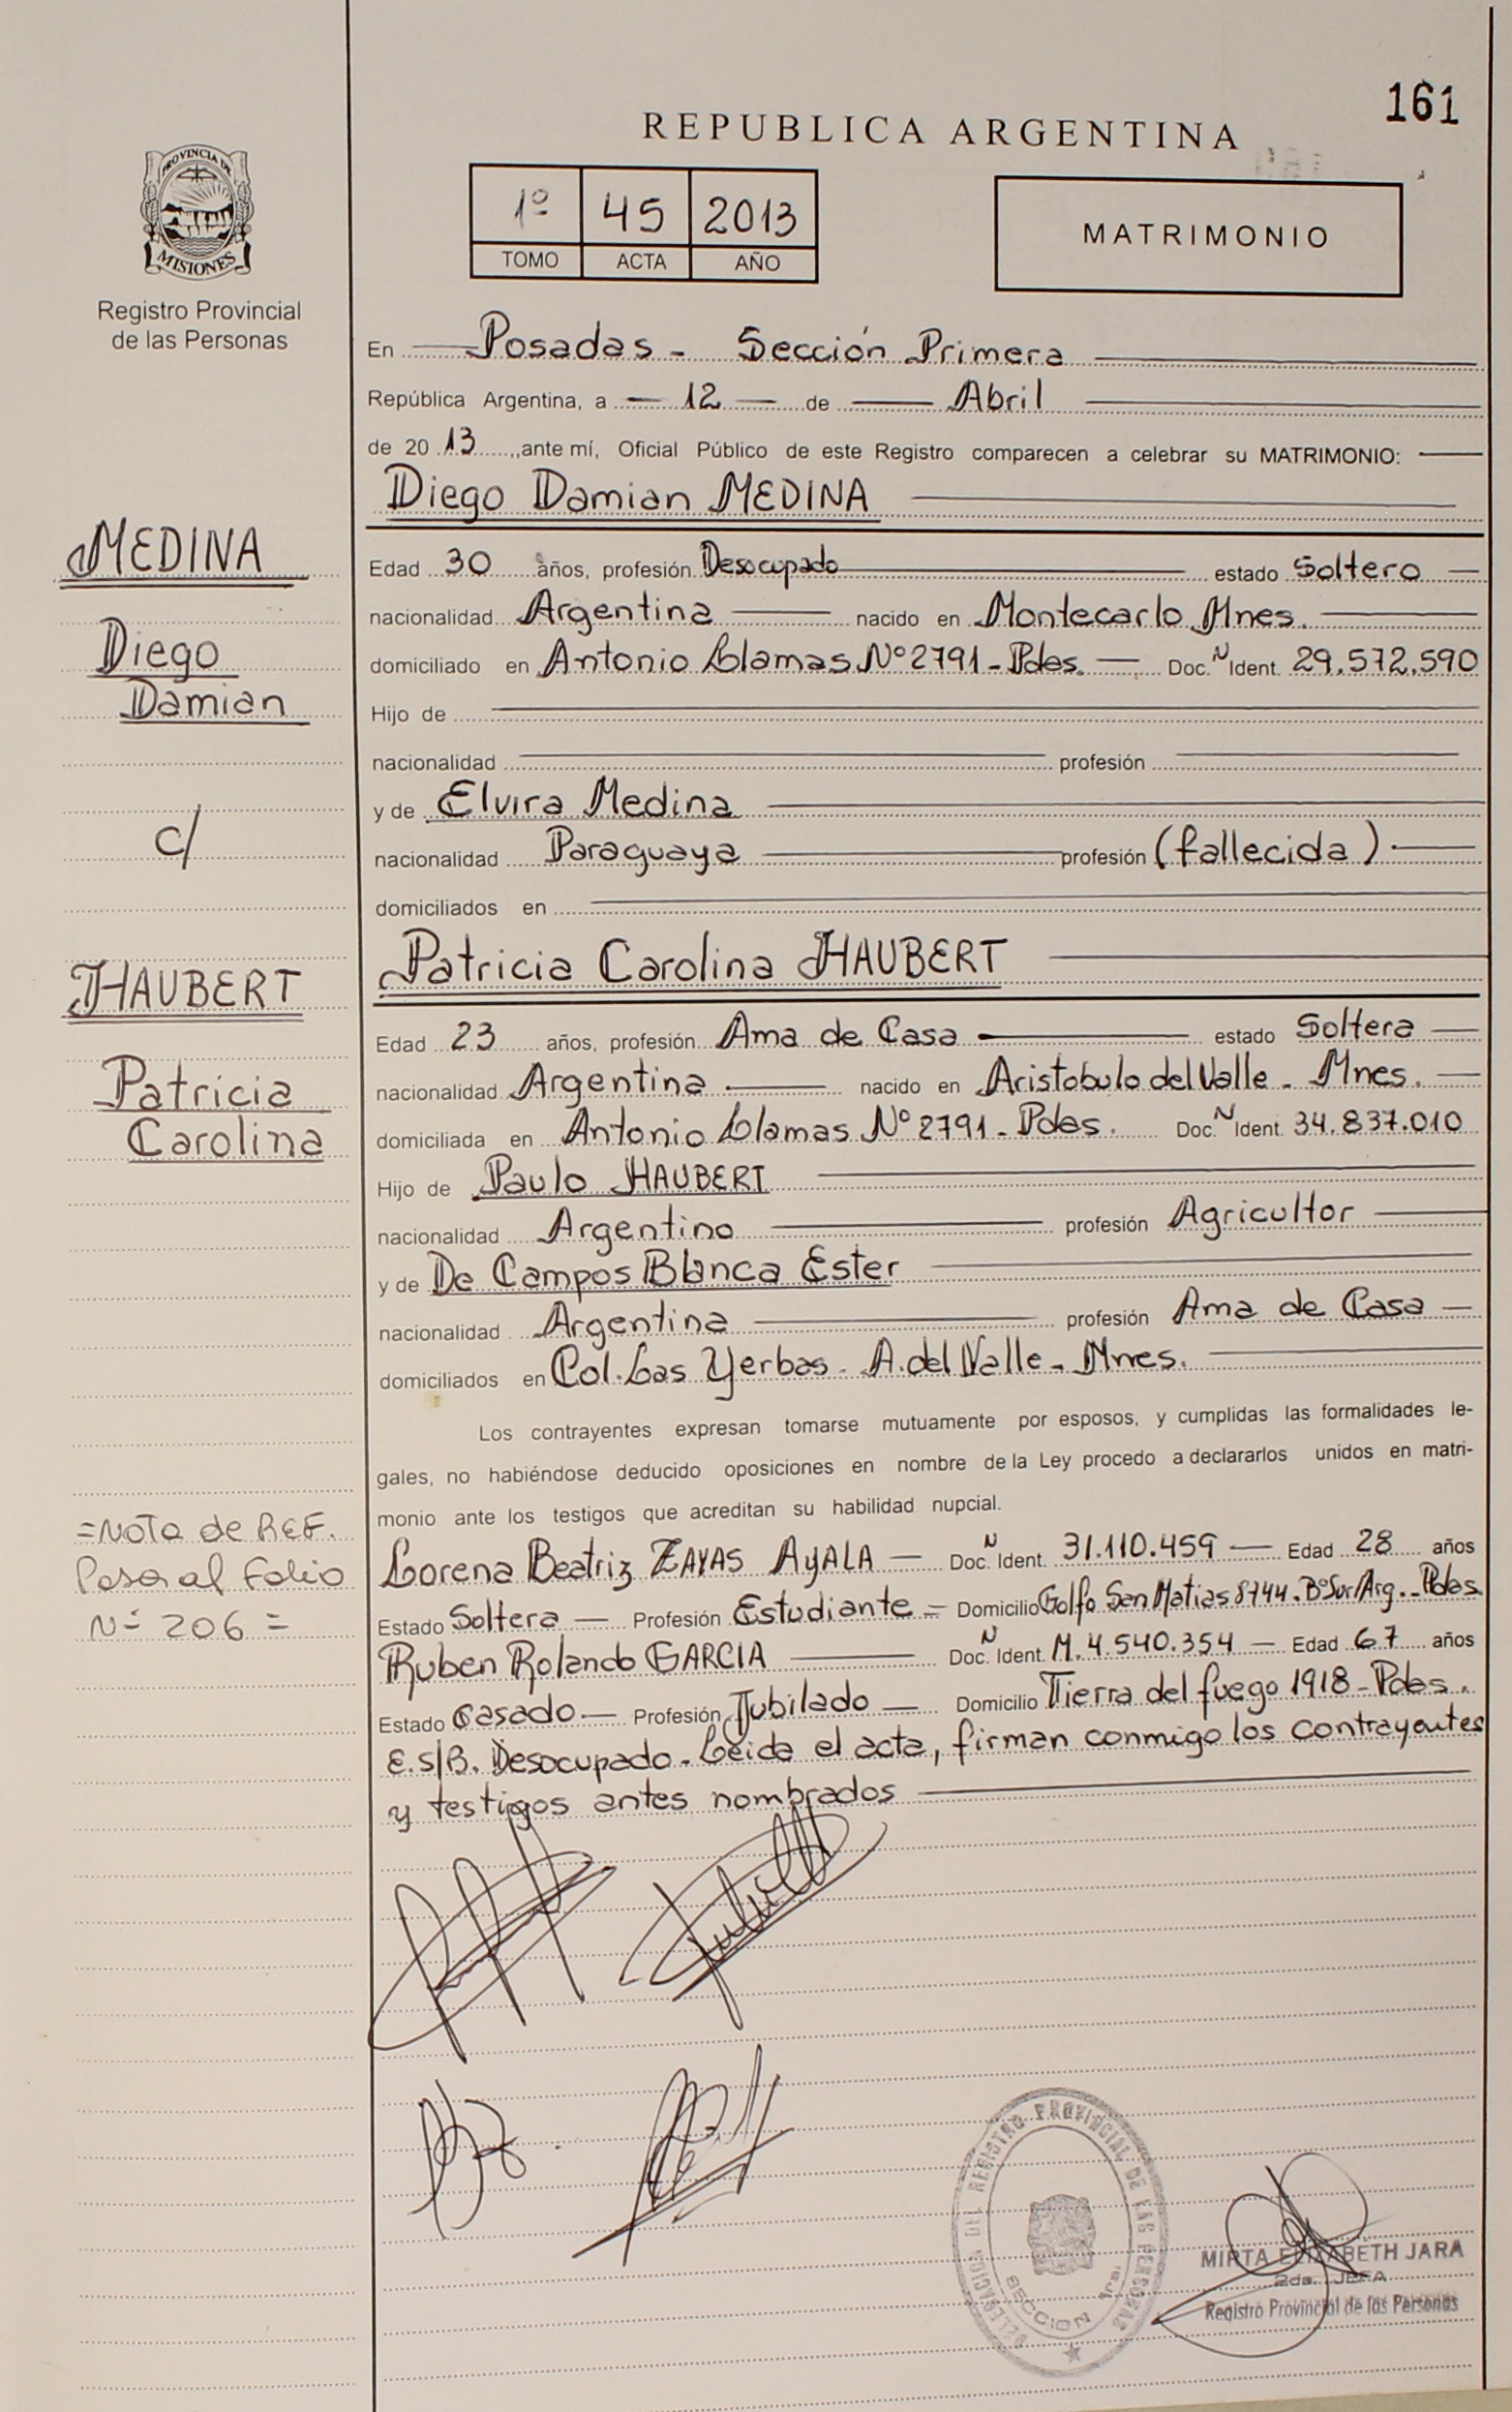 161
REPUBLICA ARGENTINA
PROVINCIA DE
MISIONES
Registro Provincial
de las Personas
1º 45 2013
TOMO ACTA AÑO
MATRIMONIO
En Posadas - Sección Primera
República Argentina, a 12 de Abril
de 20 13, ante mí, Oficial Público de este Registro comparecen a celebrar su MATRIMONIO:
Diego Damian MEDINA
MEDINA
Diego
Damian
c/
HAUBERT
Patricia
Carolina
Edad 30 años, profesión Desocupado estado Soltero
nacionalidad Argentina nacido en Montecarlo Mnes.
domiciliado en Antonio Llamas Nº 2791 - Pdas. Doc. N Ident. 29.572.590
Hijo de
nacionalidad profesión
y de Elvira Medina
nacionalidad Paraguaya profesión (fallecida)
domiciliados en
Patricia Carolina HAUBERT
Edad 23 años, profesión Ama de Casa estado Soltera
nacionalidad Argentina nacido en Aristobulo del Valle - Mnes.
domiciliada en Antonio Llamas Nº 2791 - Pdas. Doc. N Ident. 34.837.010
Hijo de Paulo HAUBERT
nacionalidad Argentino profesión Agricultor
y de De Campos Blanca Ester
nacionalidad Argentina profesión Ama de Casa
domiciliados en Col. Las Yerbas - A. del Valle - Mnes.
Los contrayentes expresan tomarse mutuamente por esposos, y cumplidas las formalidades le-
gales, no habiéndose deducido oposiciones en nombre de la Ley procedo a declararlos unidos en matri-
monio ante los testigos que acreditan su habilidad nupcial.
=Nota de REF.
Pasa al Folio
Nº 206 =
Lorena Beatriz ZAYAS AYALA - Doc. N Ident. 31.110.459 - Edad 28 años
Estado Soltera - Profesión Estudiante - Domicilio Golfo San Matias 8744. Bº Sur Arg. - Pdas.
Ruben Rolando GARCIA Doc. N Ident. M. 4.540.354 - Edad 67 años
Estado Casado - Profesión Jubilado - Domicilio Tierra del fuego 1918 - Pdas.
E.S/B. Desocupado - Leida el acta, firman conmigo los contrayentes
y testigos antes nombrados
DELEGACION DEL REGISTRO PROVINCIAL DE LAS PERSONAS
SECCION 1ra.
MIRTA ELIZABETH JARA
2da. JEFA
Registro Provincial de las Personas